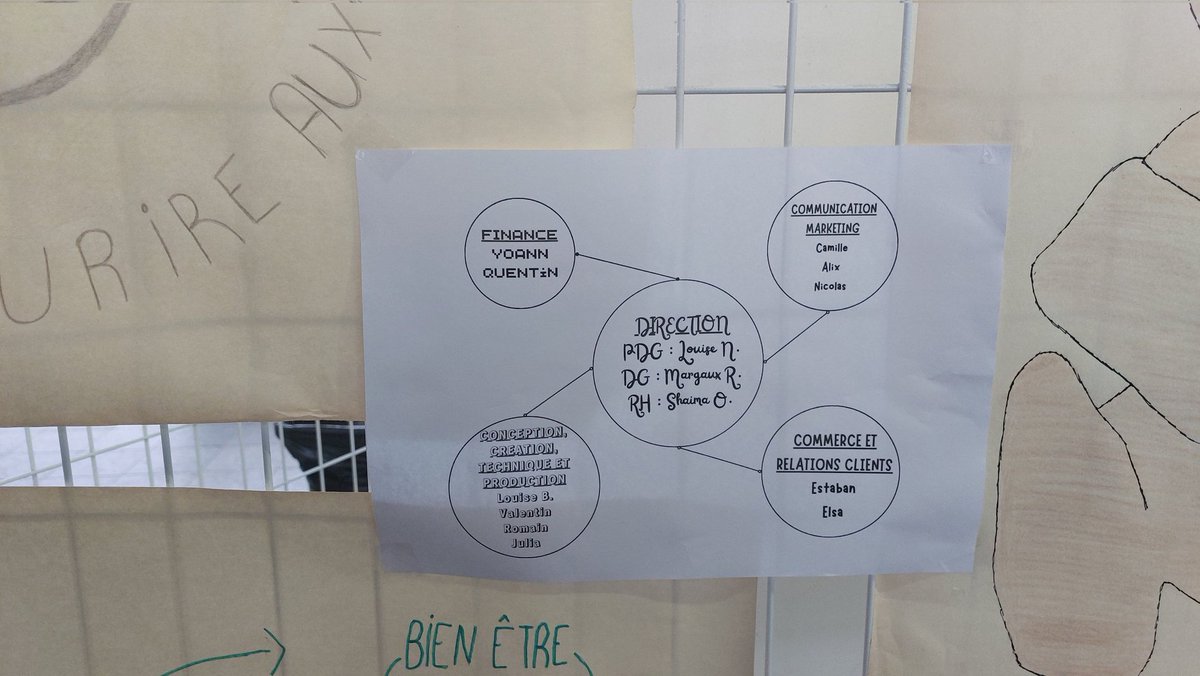 URIRE AUX
FINANCE
YOANN
QUENTiN
COMMUNICATION
MARKETING
Camille
Alix
Nicolas
DIRECTION
PDG : Louise N.
DG : Margaux R.
RH : Shaima O.
CONCEPTION,
CREATION,
TECHNIQUE ET
PRODUCTION
Louise B.
Valentin
Romain
Julia
COMMERCE ET
RELATIONS CLIENTS
Estaban
Elsa
BIEN ÊTRE